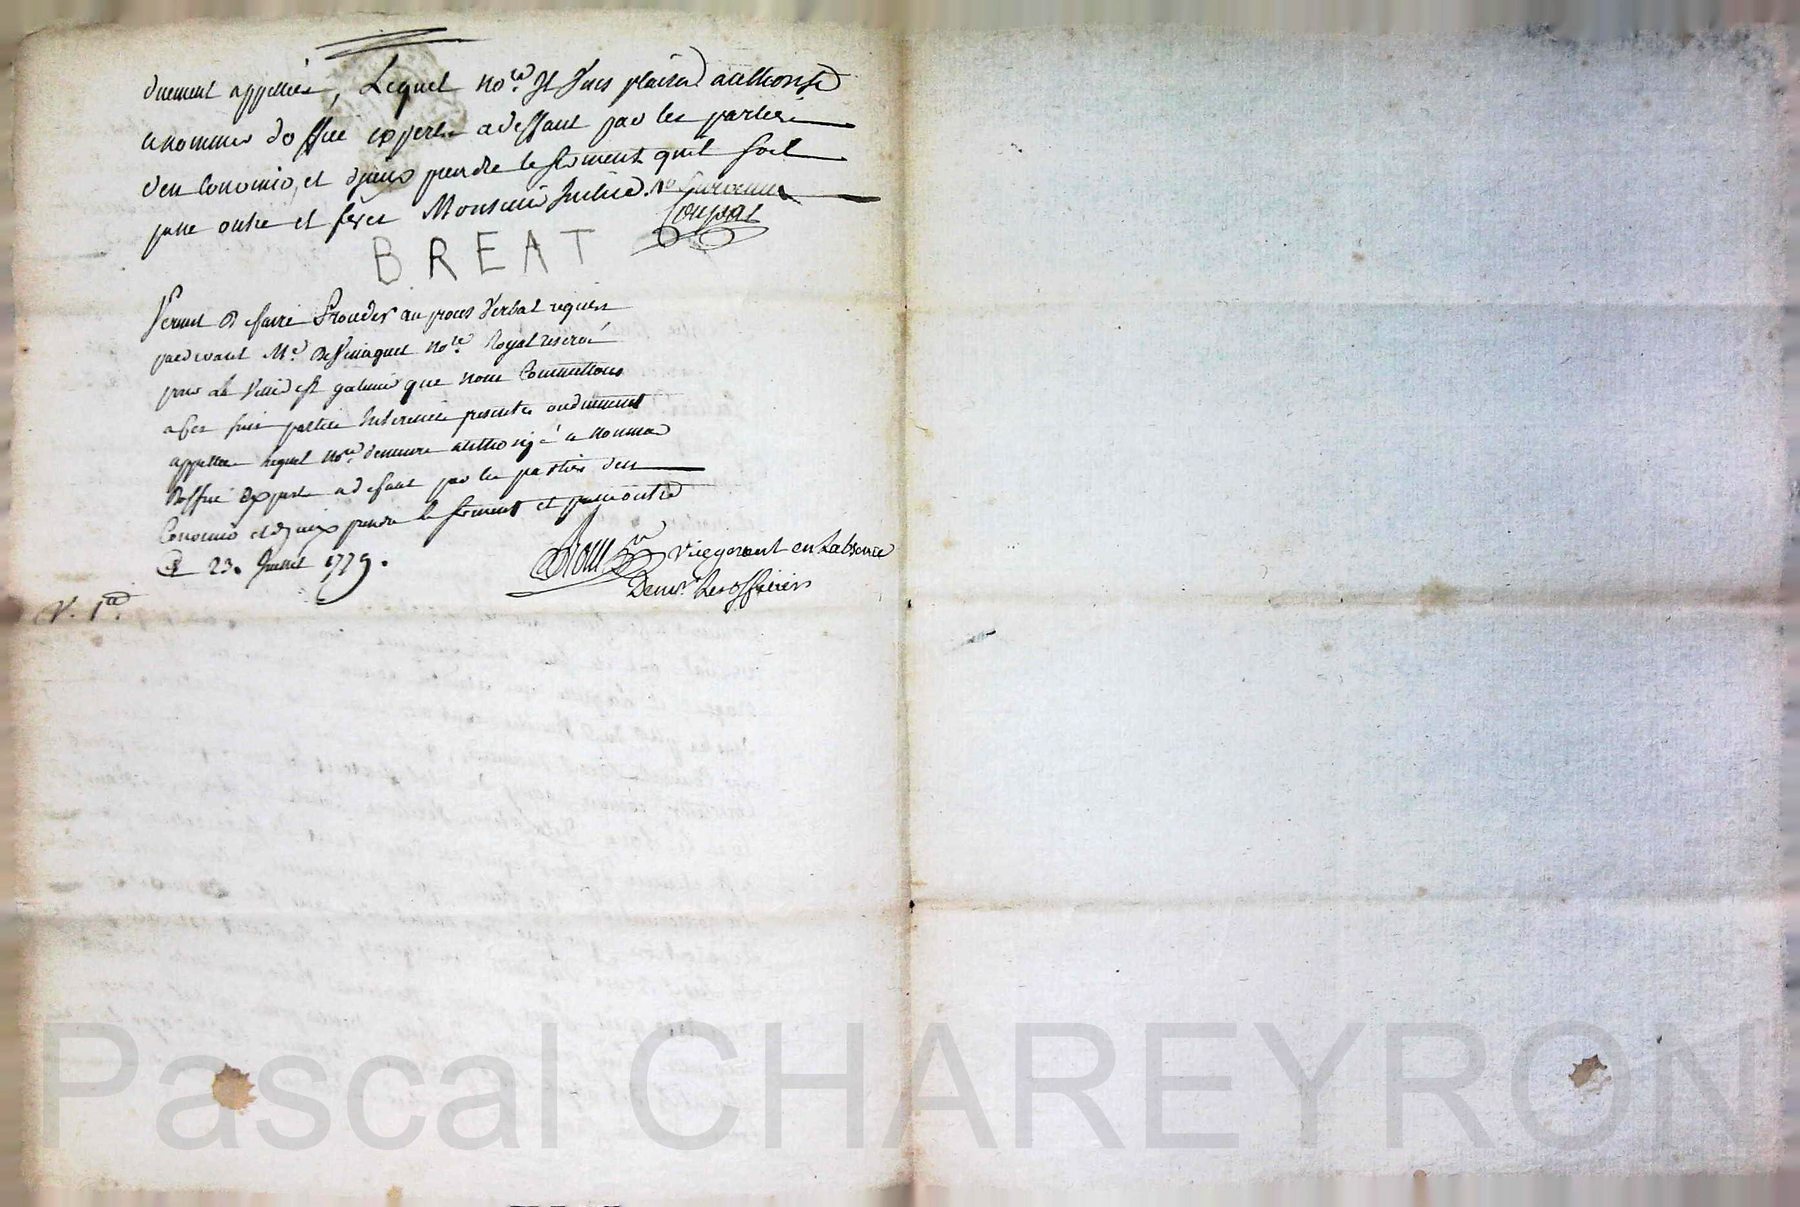 duement appellées, Lequel no.re Il Vous plaira authorisé
a nommer dofficé experts adeffaut par les parties
den Convenir, et diceux prendre le serment quil soit
passé outre et ferés Monsieur Justice.
Coupat
BREAT
Permis de faire Proceder au proces Verbal requis
pardevant Me. no.re Royal reservé
pour la Ville de que nous Commettons
a ces fins parties Interessées presentes ou duement
appellées lequel no.re demeure authorizé a nommer
doffice experts a defaut par les parties den
Convenir et diceux prendre le serment et passé outre
Ce 23. Juillet 1779.
Vicegerant en Labsence
De mrs. Les officiers
Pascal CHAREYRON